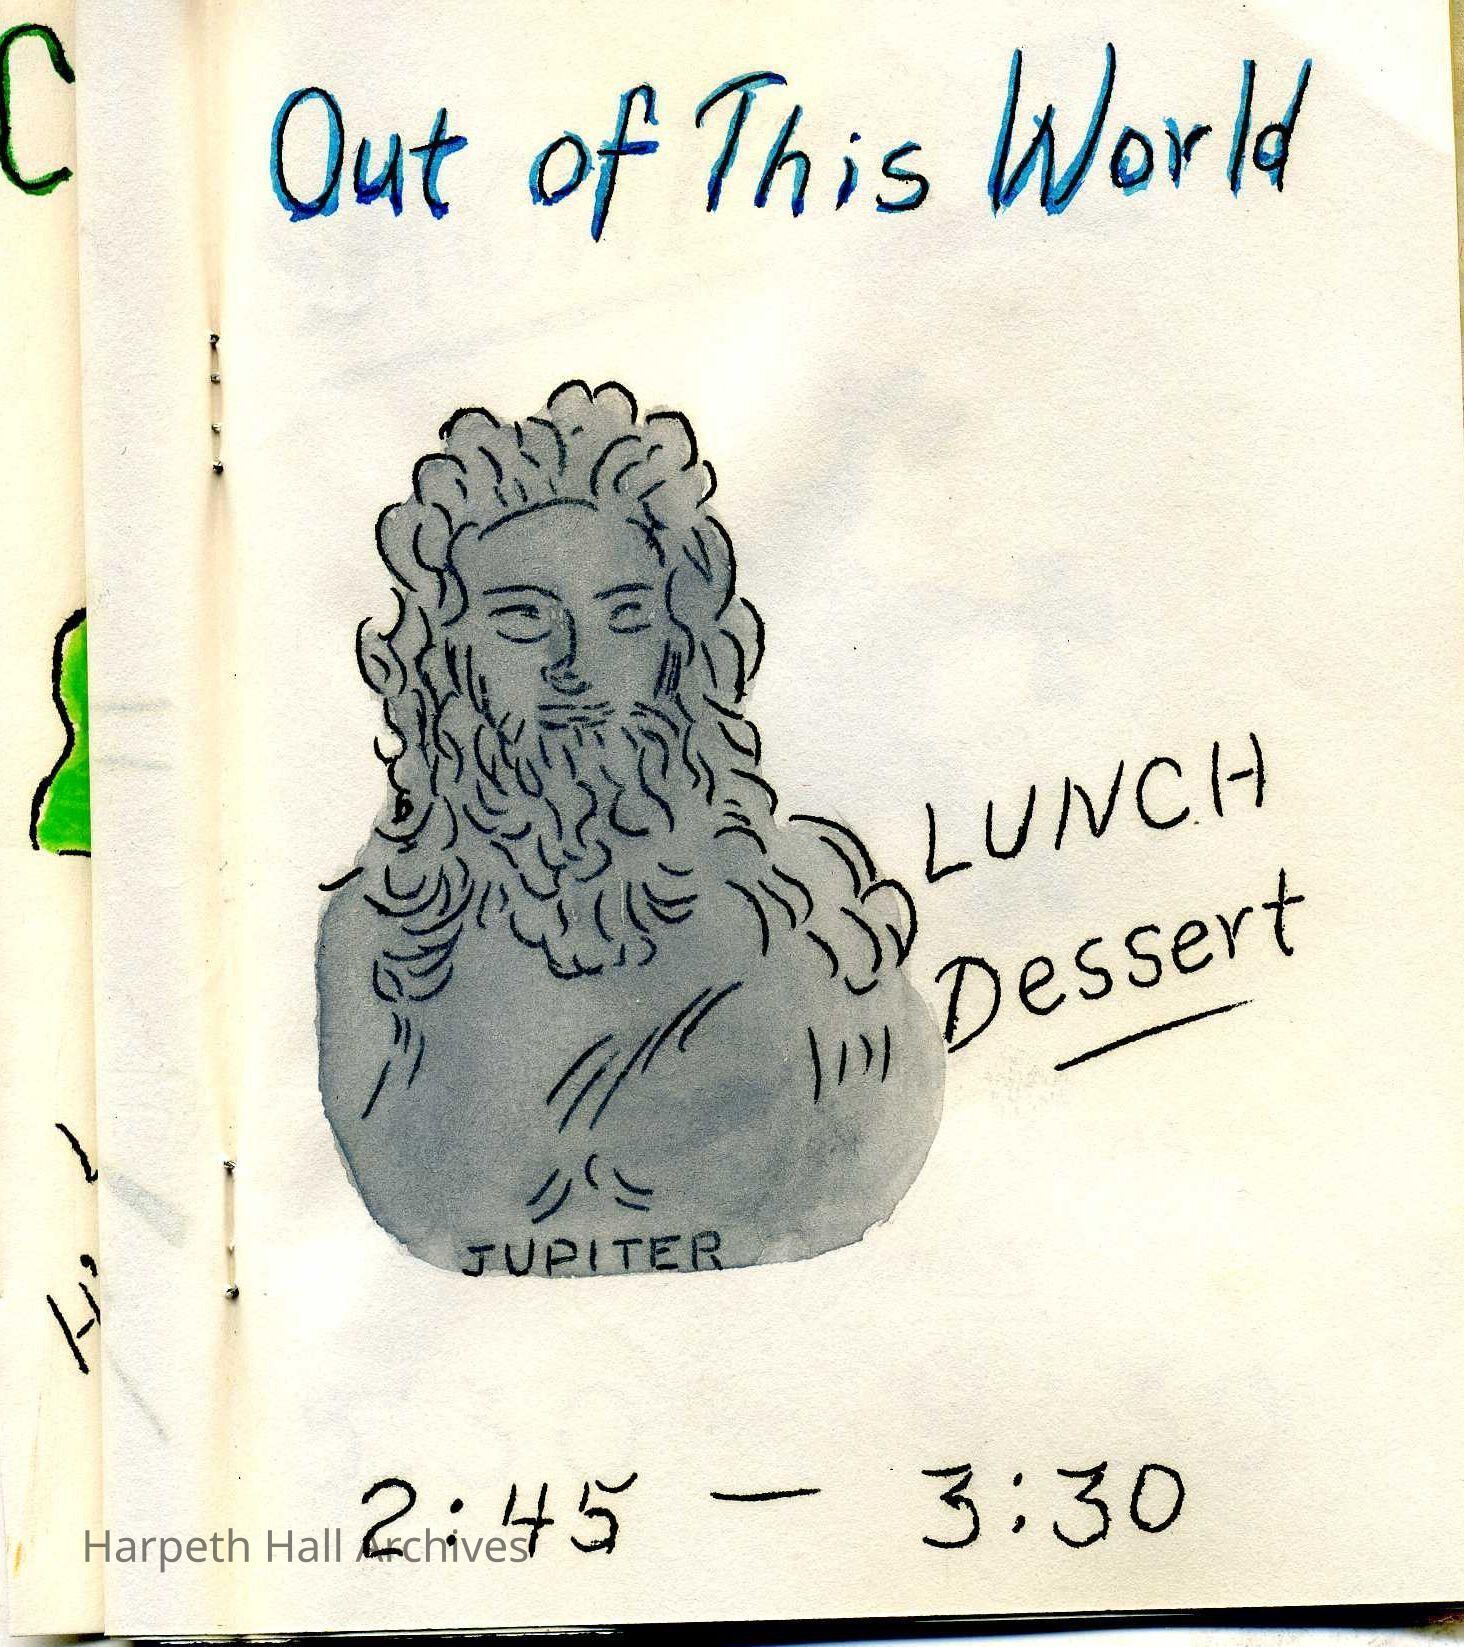 C
Out of This World
LUNCH
Dessert
JUPITER
2:45 — 3:30
Harpeth Hall Archives